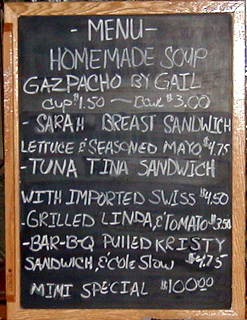 - MENU -
HOMEMADE SOUP
GAZPACHO BY GAIL
CUP $1.50 — Bowl $3.00
- SARAH BREAST SANDWICH
LETTUCE & SEASONED MAYO $4.75
- TUNA TINA SANDWICH
WITH IMPORTED SWISS $4.50
- GRILLED LINDA, & TOMATO $3.50
- BAR-B-Q PULLED KRISTY
SANDWICH, & Cole Slaw $4.75
MIMI SPECIAL $100.00